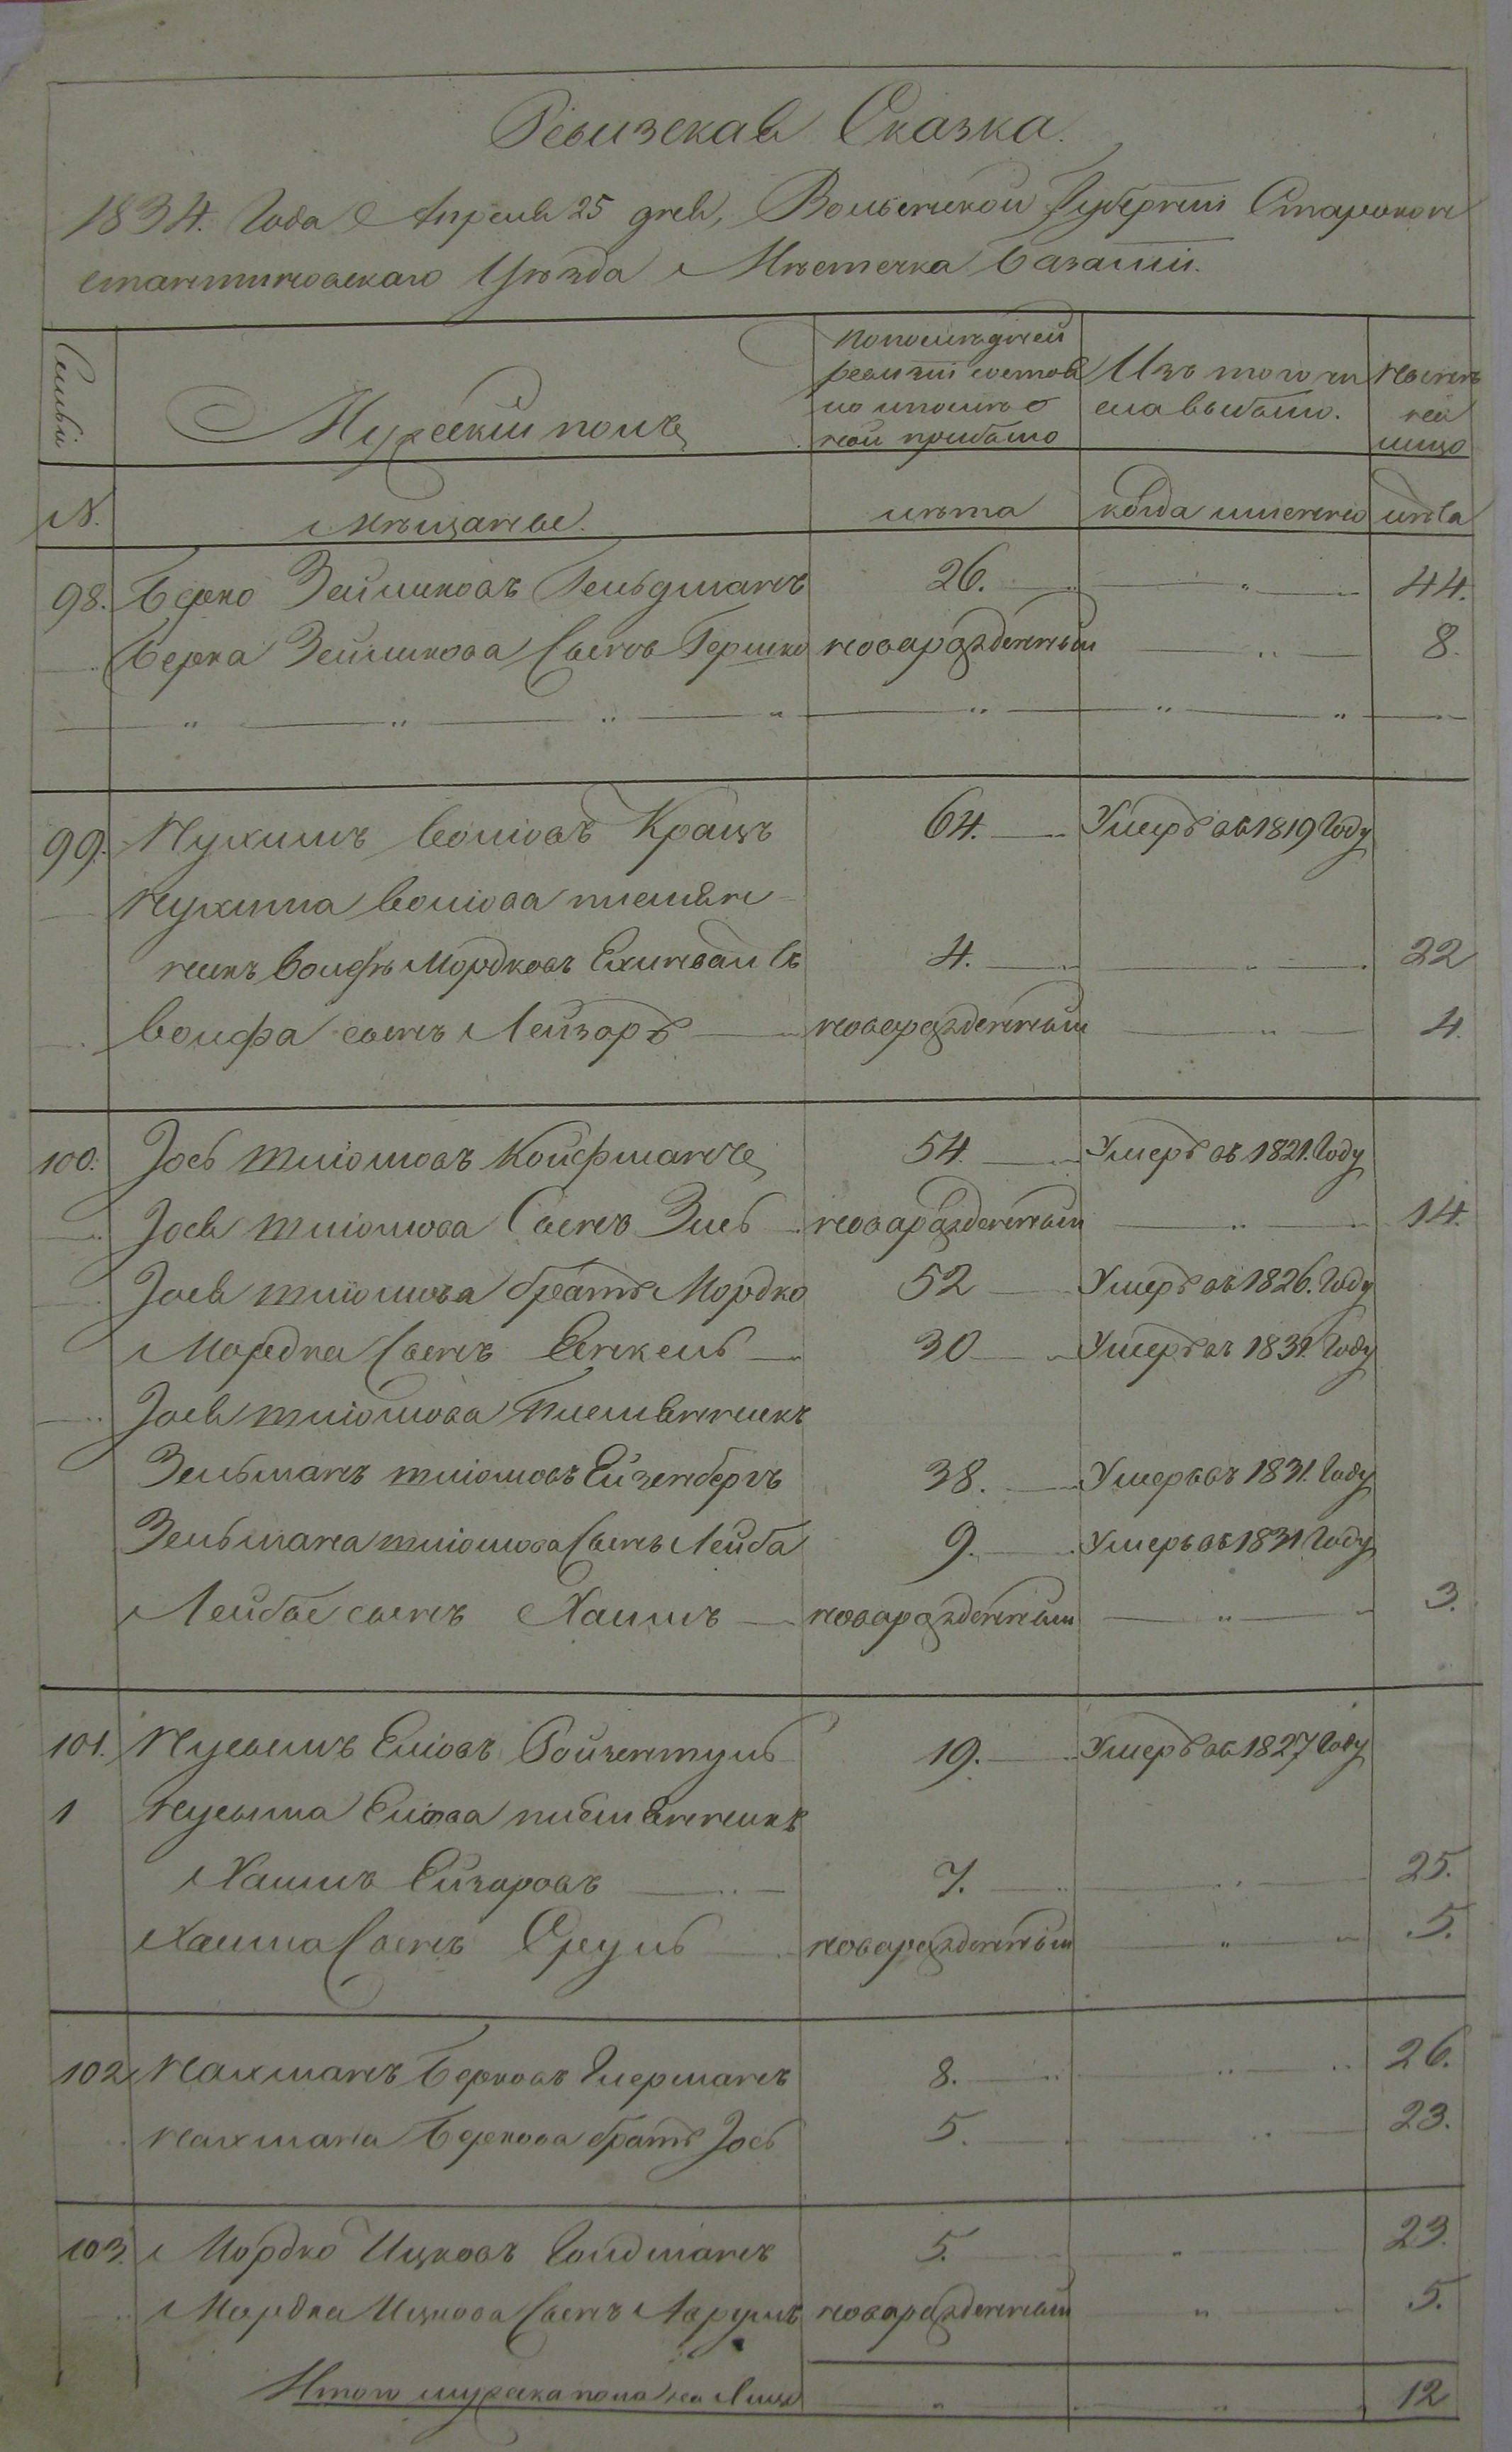 Ревизская Сказка.
1834. Года Апреля 25 дня, Волынской Губерніи Старокон
стантиновскаго Уѣзда Мѣстечка Базаліи.
Семьи
Мужескій полъ
По последней
ревизіи состоя
ло и после о
ной прибыло
Изъ того чи
сла выбыло.
Нынѣ
на
лицо
№.
Мѣщане.
лѣта
когда имянно
лѣта
98. Берко Зейликовъ Гельдманъ 26. 44.
Берка Зейликова Сынъ Гершко новарожденный 8.
99. Нухимъ Волiовъ Крацъ 64. Умеръ въ 1819 Году
Нухима Волiова племян
никъ Волфъ Мордковъ 4. 22
Волфа сынъ Лейзоръ новорожденный 4.
100. Іось Шліомовъ Койфманъ 54. Умеръ въ 1821. Году
Іося Шліомова Сынъ Зись новарожденный 14.
Іося Шліомова братъ Мордко 52 Умеръ въ 1826. Году
Мордка Сынъ Янкель 30 Умеръ въ 1831. Году
Іося Шліомова Племянникъ
Зельманъ Шліомовъ Ейзенбергъ 38. Умеръ въ 1831. Году
Зельмана Шліомова Сынъ Лейба 9. Умеръ въ 1831 Году
Лейбы сынъ Хаимъ новарожденный 3.
101. Нусымъ Еліовъ Ройзентуль 19. Умеръ въ 1827 Году
1 Нусыма Еліова племянникъ
Хаимъ Ейзаровъ 7. 25.
Хаима Сынъ Сруль новарожденный 5.
102 Нахманъ Берковъ 8. 26.
Нахмана Беркова братъ Іось 5. 23.
103. Мордко Ицковъ Голдманъ 5. 23.
Мордка Ицкова Сынъ Аврумъ новарожденный 5.
Итого мужеска пола на Лицо 12